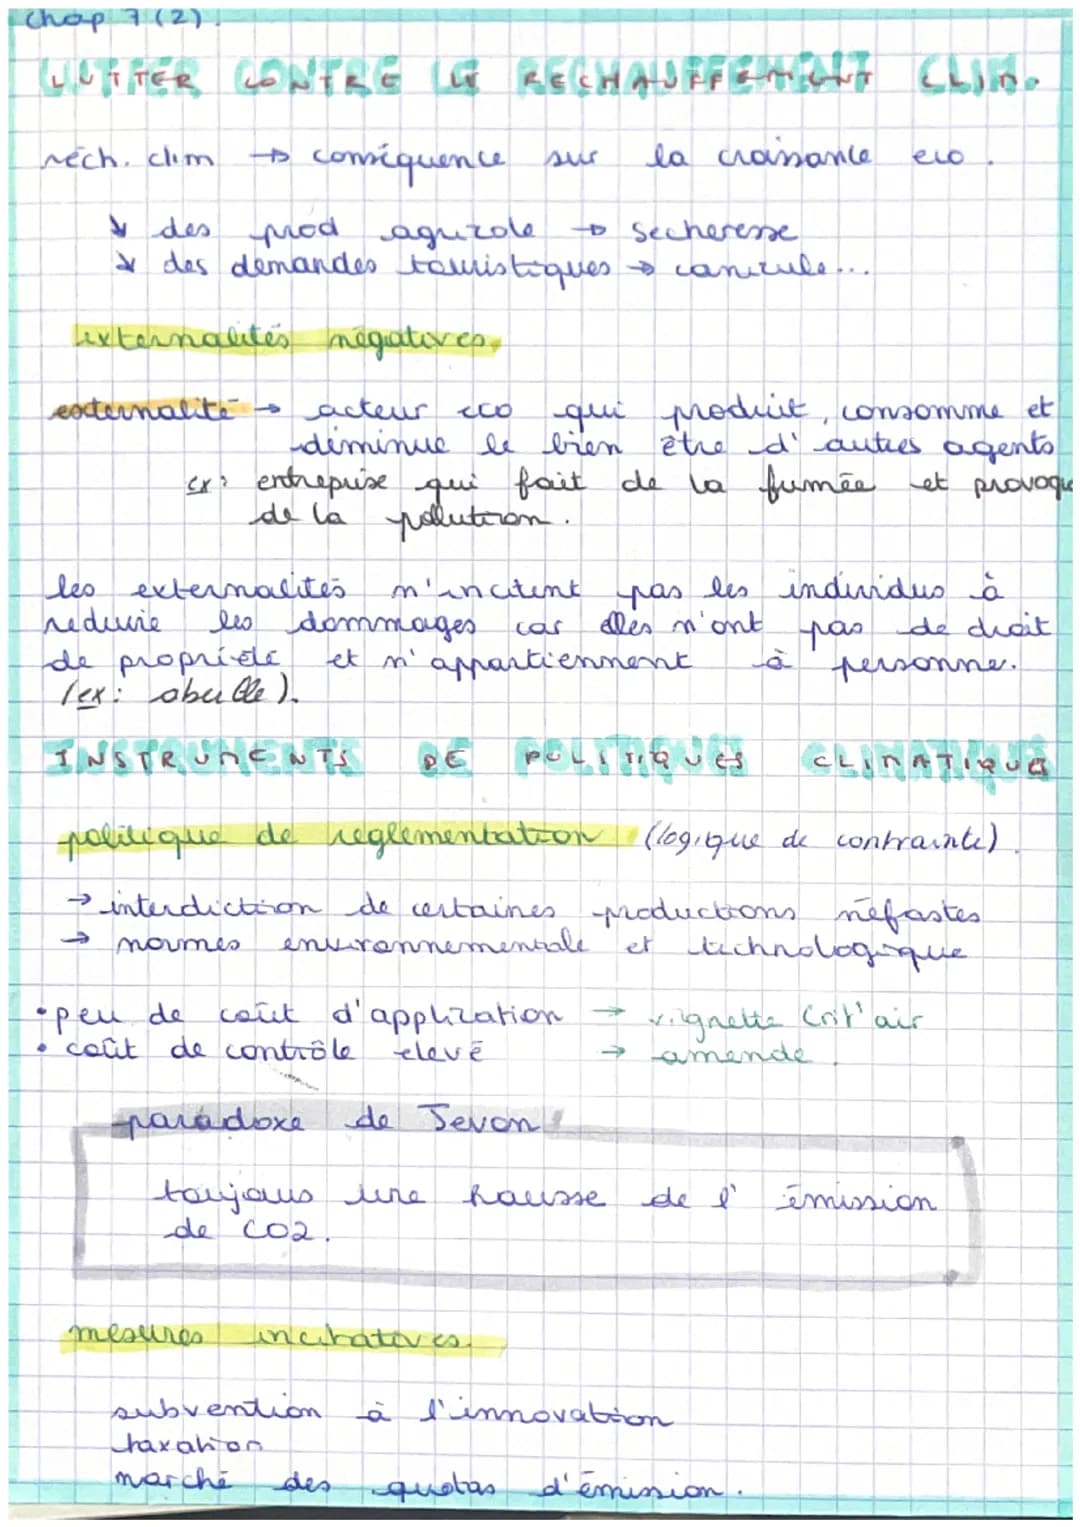 chap 7 (2).
LUTTER CONTRE LE RECHAUFFEMENT CLIM.
réch. clim → conséquence sur la croissance eco.
↓ des prod agricole → secheresse
↓ des demandes touristiques → canicule...
externalités négatives.
externalité → acteur eco qui produit, consomme et
diminue le bien être d'autres agents
ex: entreprise qui fait de la fumée et provoque
de la pollution.
les externalités n'incitent pas les individus à
reduire les dommages car elles n'ont pas de droit
de propriété et n'appartiennent à personne.
(ex: abeille).
INSTRUMENTS DE POLITIQUES CLIMATIQUE
politique de reglementation (logique de contrainte).
→ interdiction de certaines productions néfastes
→ normes environnementale et technologique
• peu de coût d'application → vignette Crit'air
• coût de contrôle elevé → amende.
paradoxe de Jevon
toujours une hausse de l'émission
de CO2.
mesures incitatives.
subvention à l'innovation
taxation
marché des quotas d'émission.